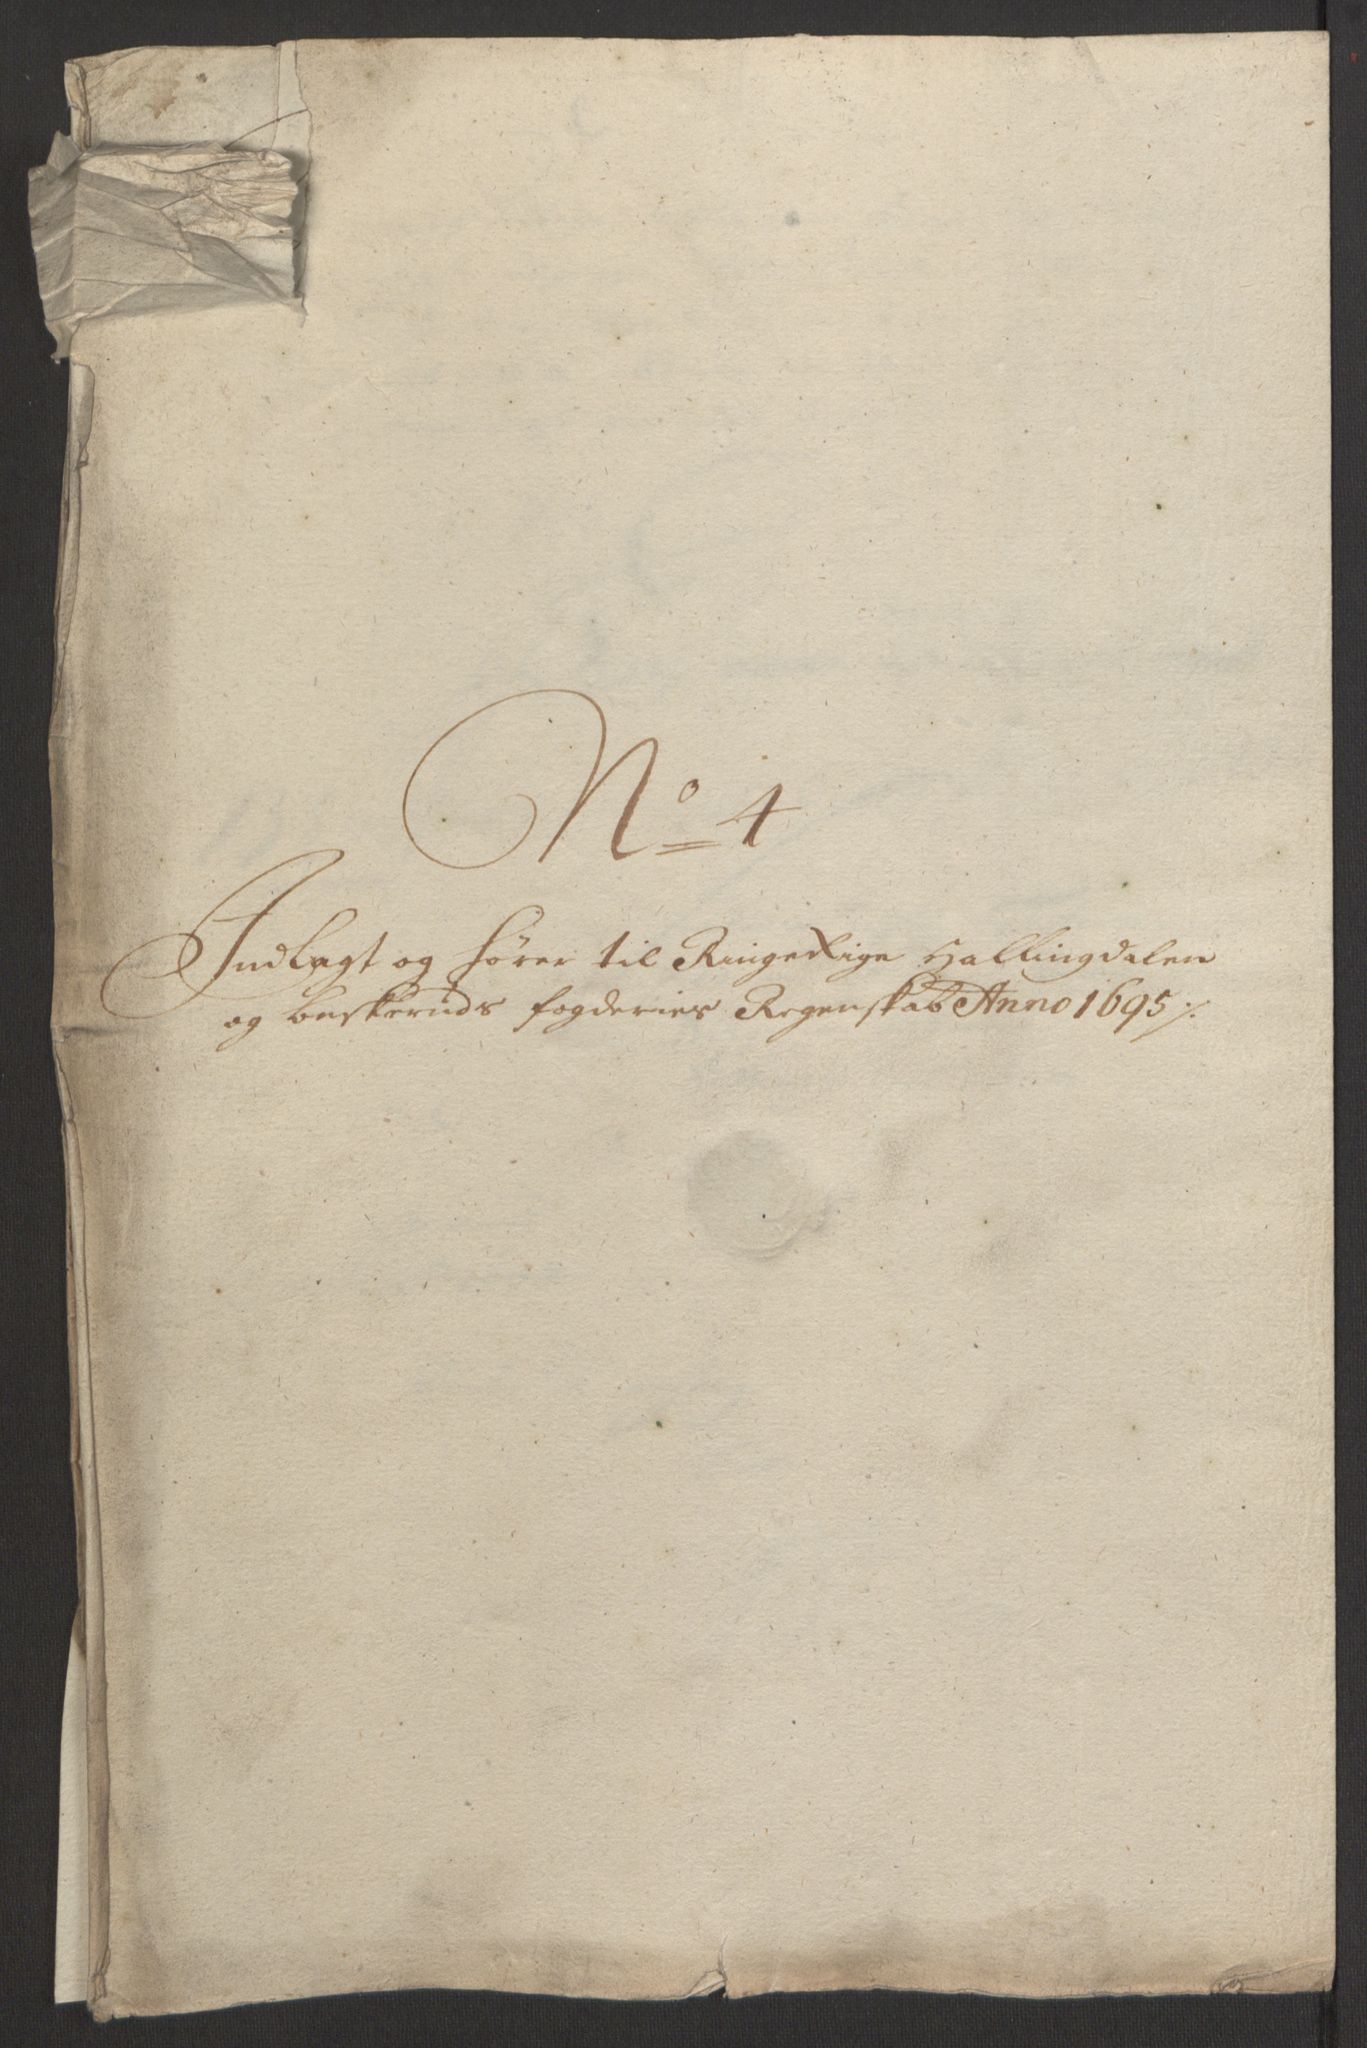 No 4
Indlagt og hörer til Ringerige Hallingdalen
og buskeruds fogderies Regenskab Anno 1695 ./.